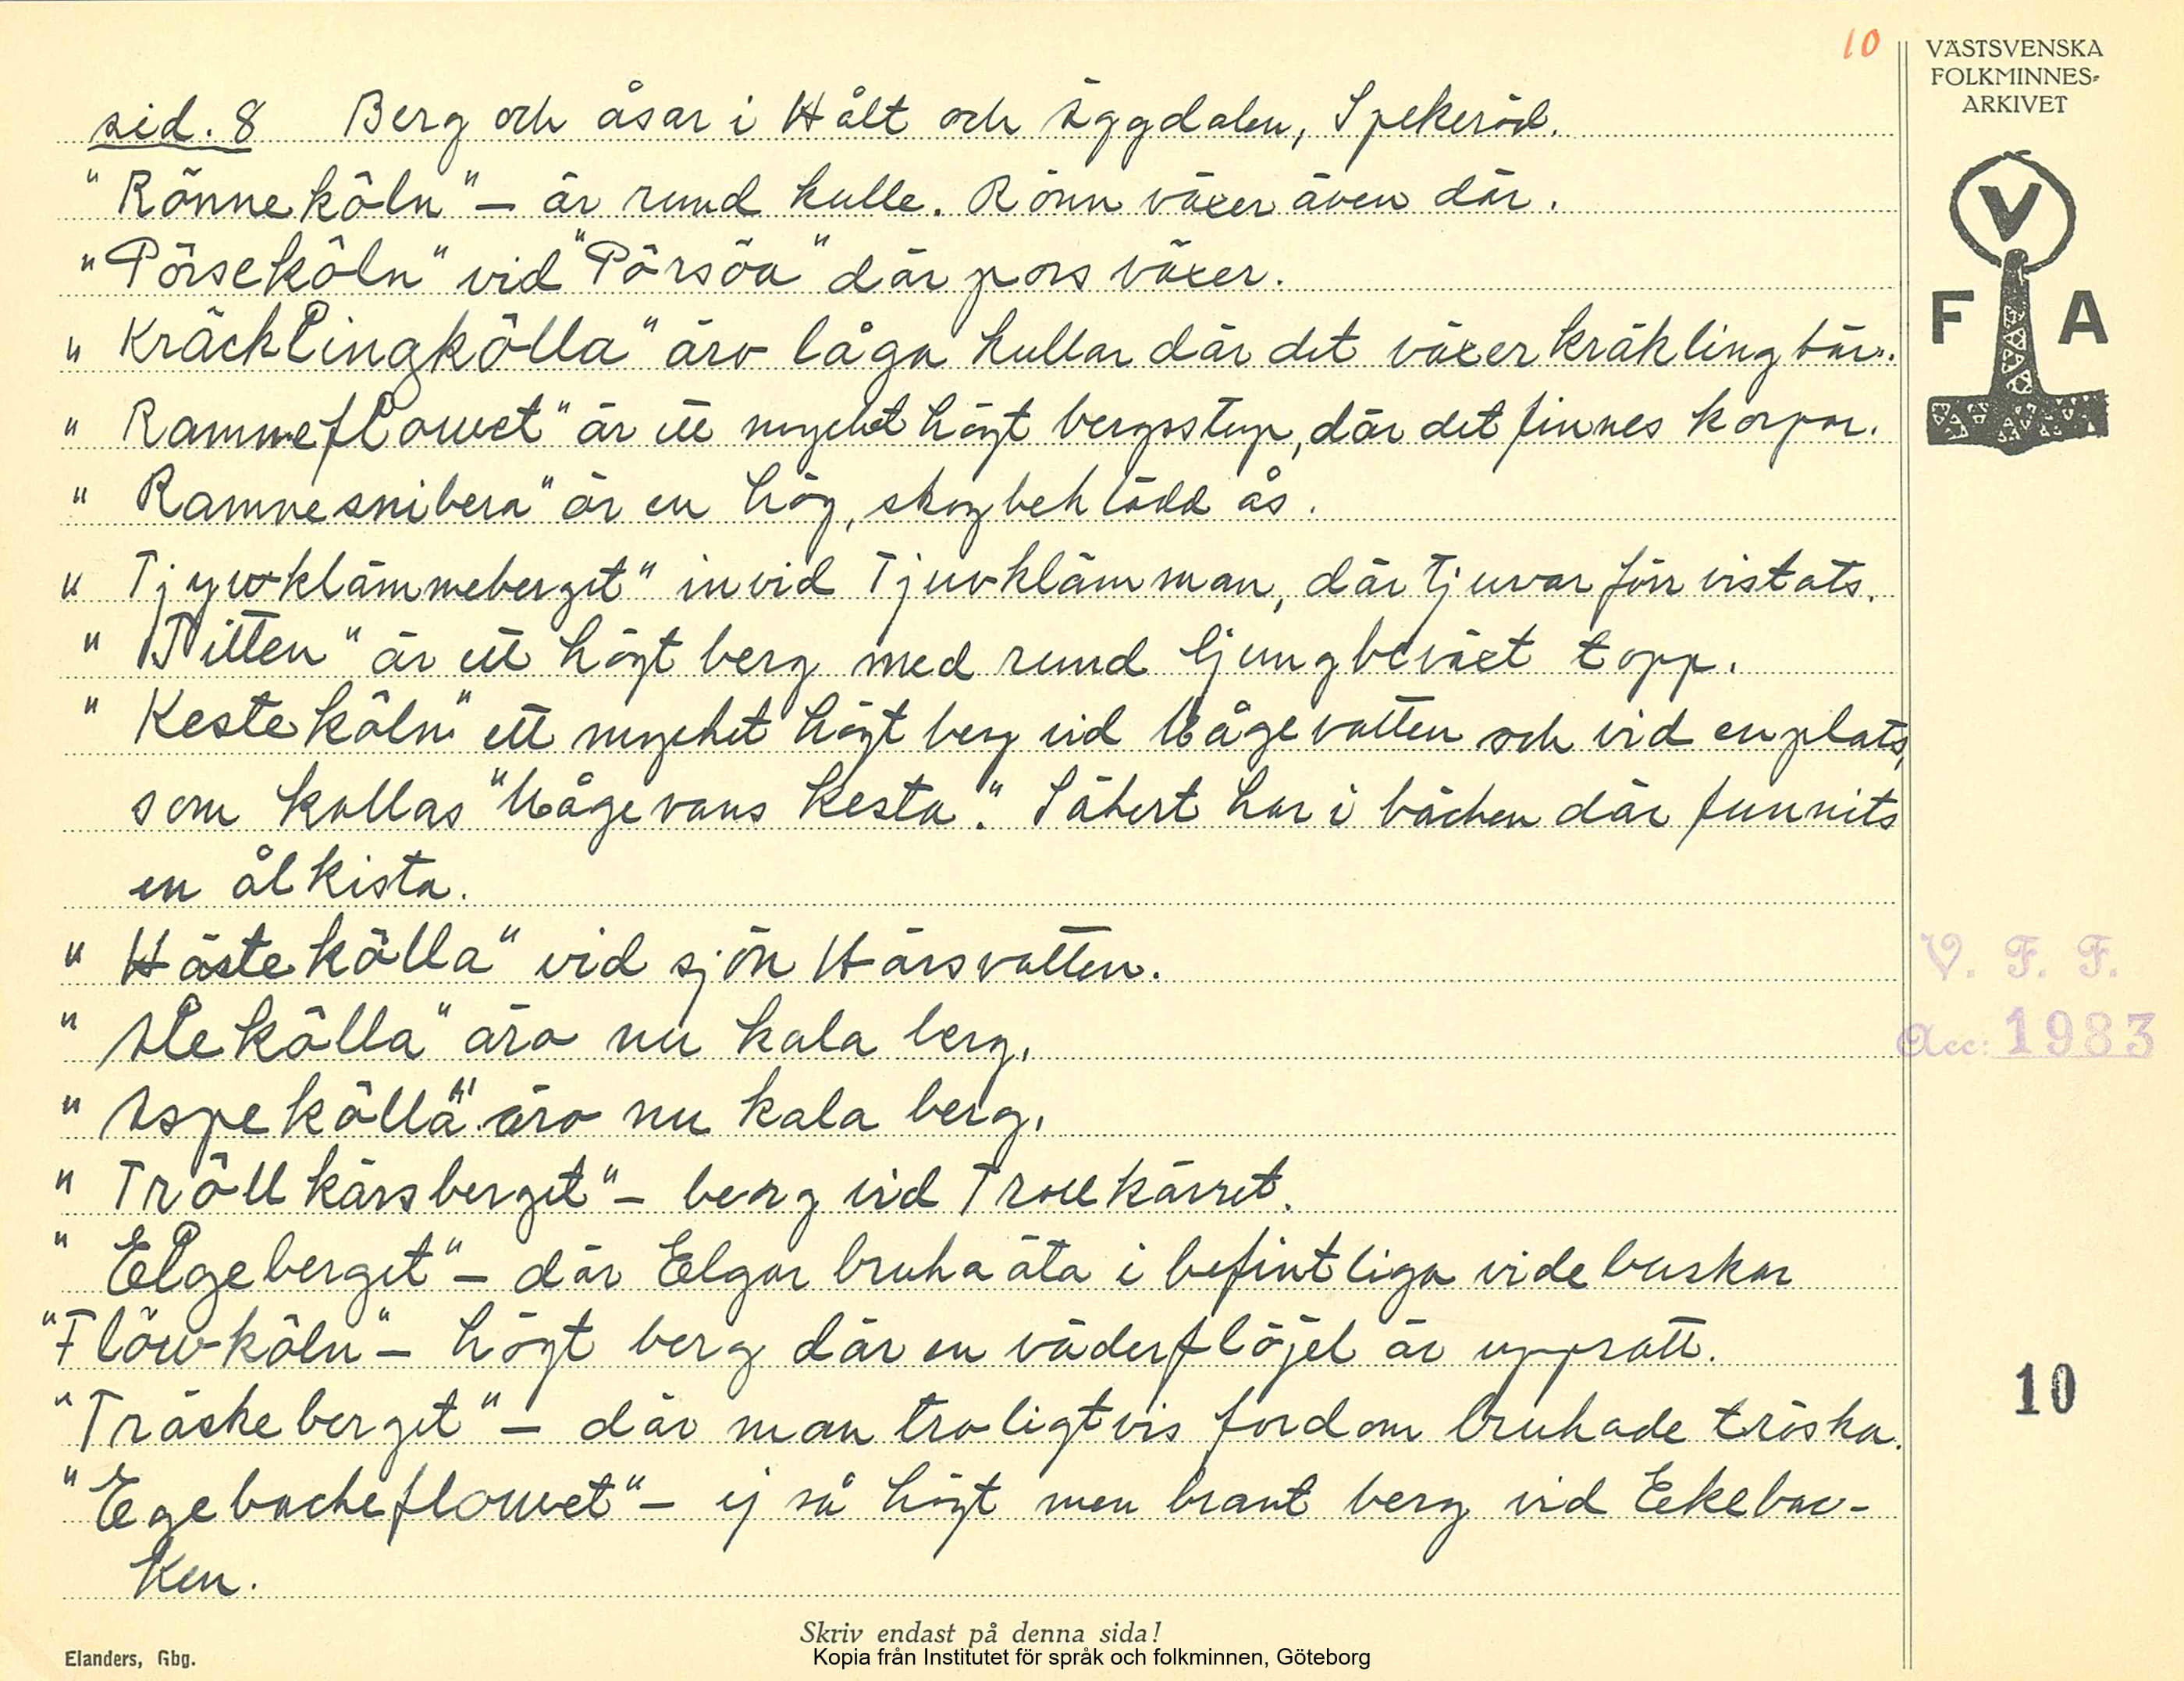 10
VÄSTSVENSKA
FOLKMINNES-
ARKIVET
V
F A
sid. 8 Berg och åsar i Hålt och Äggdalen, Spekeröd.
"Rönneköln" – är rund kulle. Rönn växer även där.
"Pörseköln" vid "Pörsöa" där pors växer.
"Kräcklingkölla" äro låga kullar där det växer kräklingbär.
"Rammeflowet" är ett mycket högt bergsstup, där det finnes korpar.
"Ramnesnibera" är en hög, skogbeklädd ås.
"Tjyvklämmeberget" invid Tjuvklämman, där tjuvar förr vistats.
"Titten" är ett högt berg med rund ljungbeväxt topp.
"Kesteköln" ett mycket högt berg vid Vågevatten och vid en plats,
som kallas "Vågevans kesta." Säkert har i bäcken där funnits
en ålkista.
"Hästekölla" vid sjön Härsvatten.
"Alekölla" äro nu kala berg.
"Aspekölla" äro nu kala berg.
"Tröllkärsberget" – berg vid Trollkärret.
"Elgeberget" – där Elgar bruka äta i befintliga videbuskar
"Flöwköln" – högt berg där en väderflöjel är uppsatt.
"Träskeberget" – där man troligtvis fordom brukade tröska.
"Egebackeflowet" – ej så högt men brant berg vid Ekebac-
ken.
V. F. F.
Acc: 1983
10
Skriv endast på denna sida!
Elanders, Gbg.
Kopia från Institutet för språk och folkminnen, Göteborg